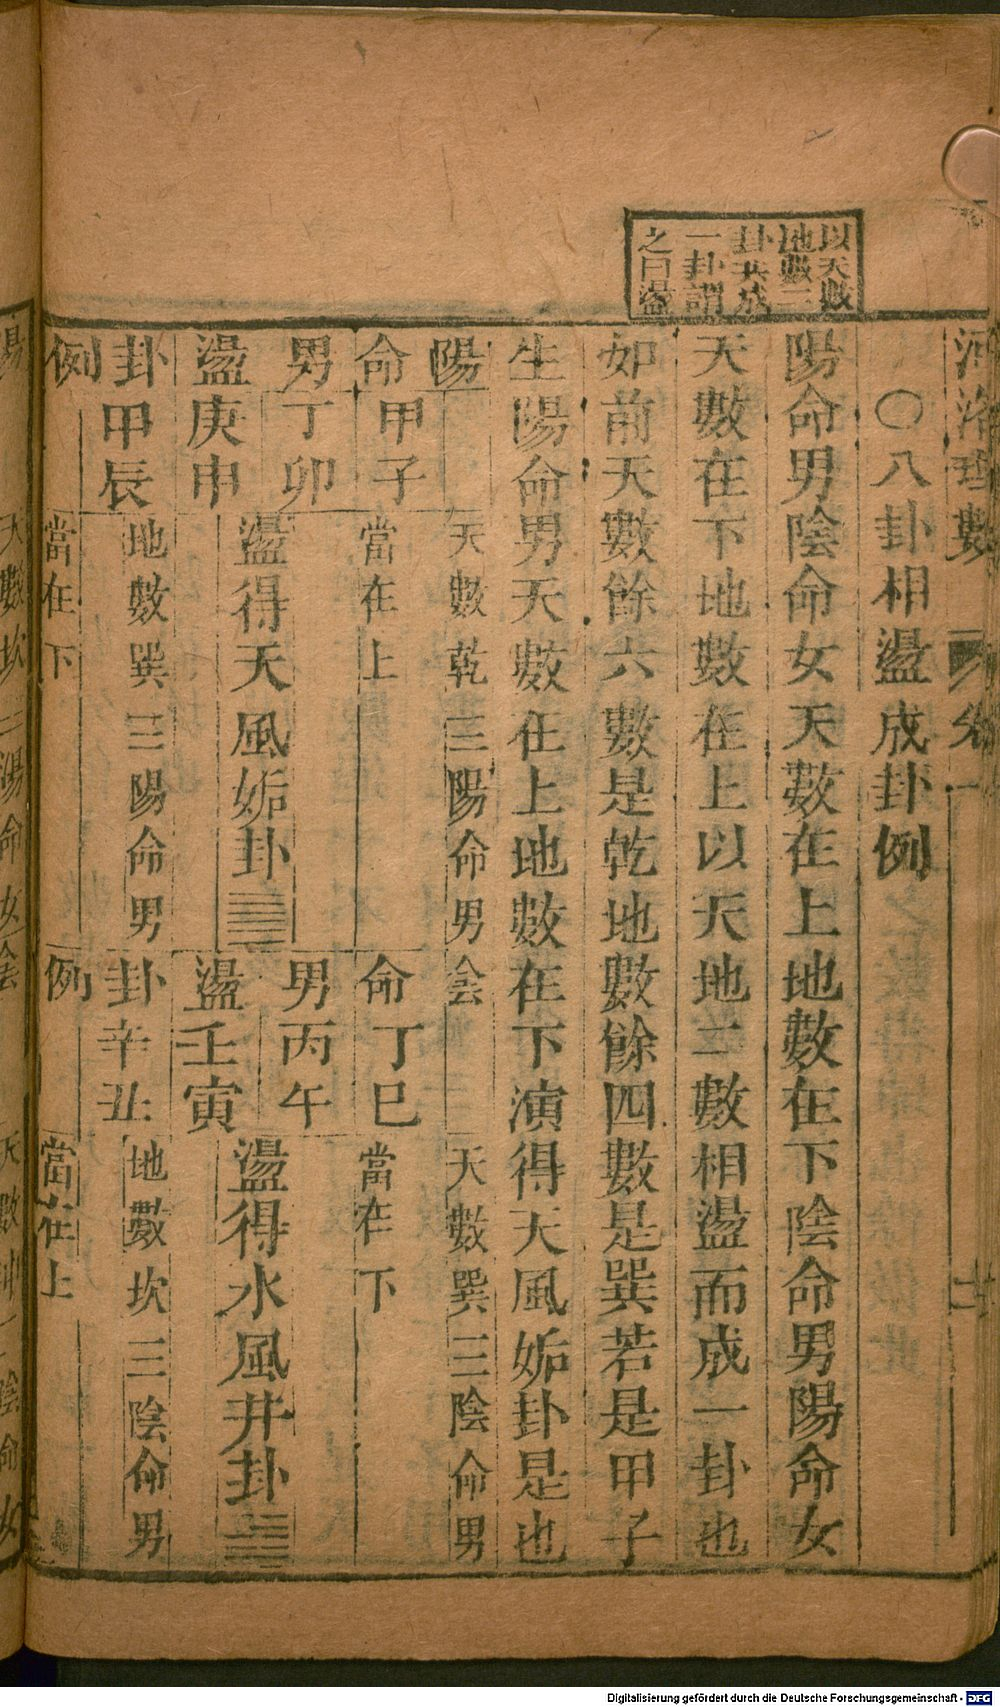 河洛理數 卷一
以天數
地數二
卦共成
一卦謂
之曰盪
〇八卦相盪成卦例
陽命男陰命女天數在上地數在下陰命男陽命女
天數在下地數在上以天地二數相盪而成一卦也
如前天數餘六數是乾地數餘四數是巽若是甲子
生陽命男天數在上地數在下演得天風姤卦是也
陽命男盪卦例
甲子
丁卯
庚申
甲辰
天數乾三陽命男
當在上
盪得天風姤卦
地數巽三陽命男
當在下
陰命男盪卦例
丁巳
丙午
壬寅
辛丑
天數巽三陰命男
當在下
盪得水風井卦
地數坎三陰命男
當在上
Digitalisierung gefördert durch die Deutsche Forschungsgemeinschaft - DFG